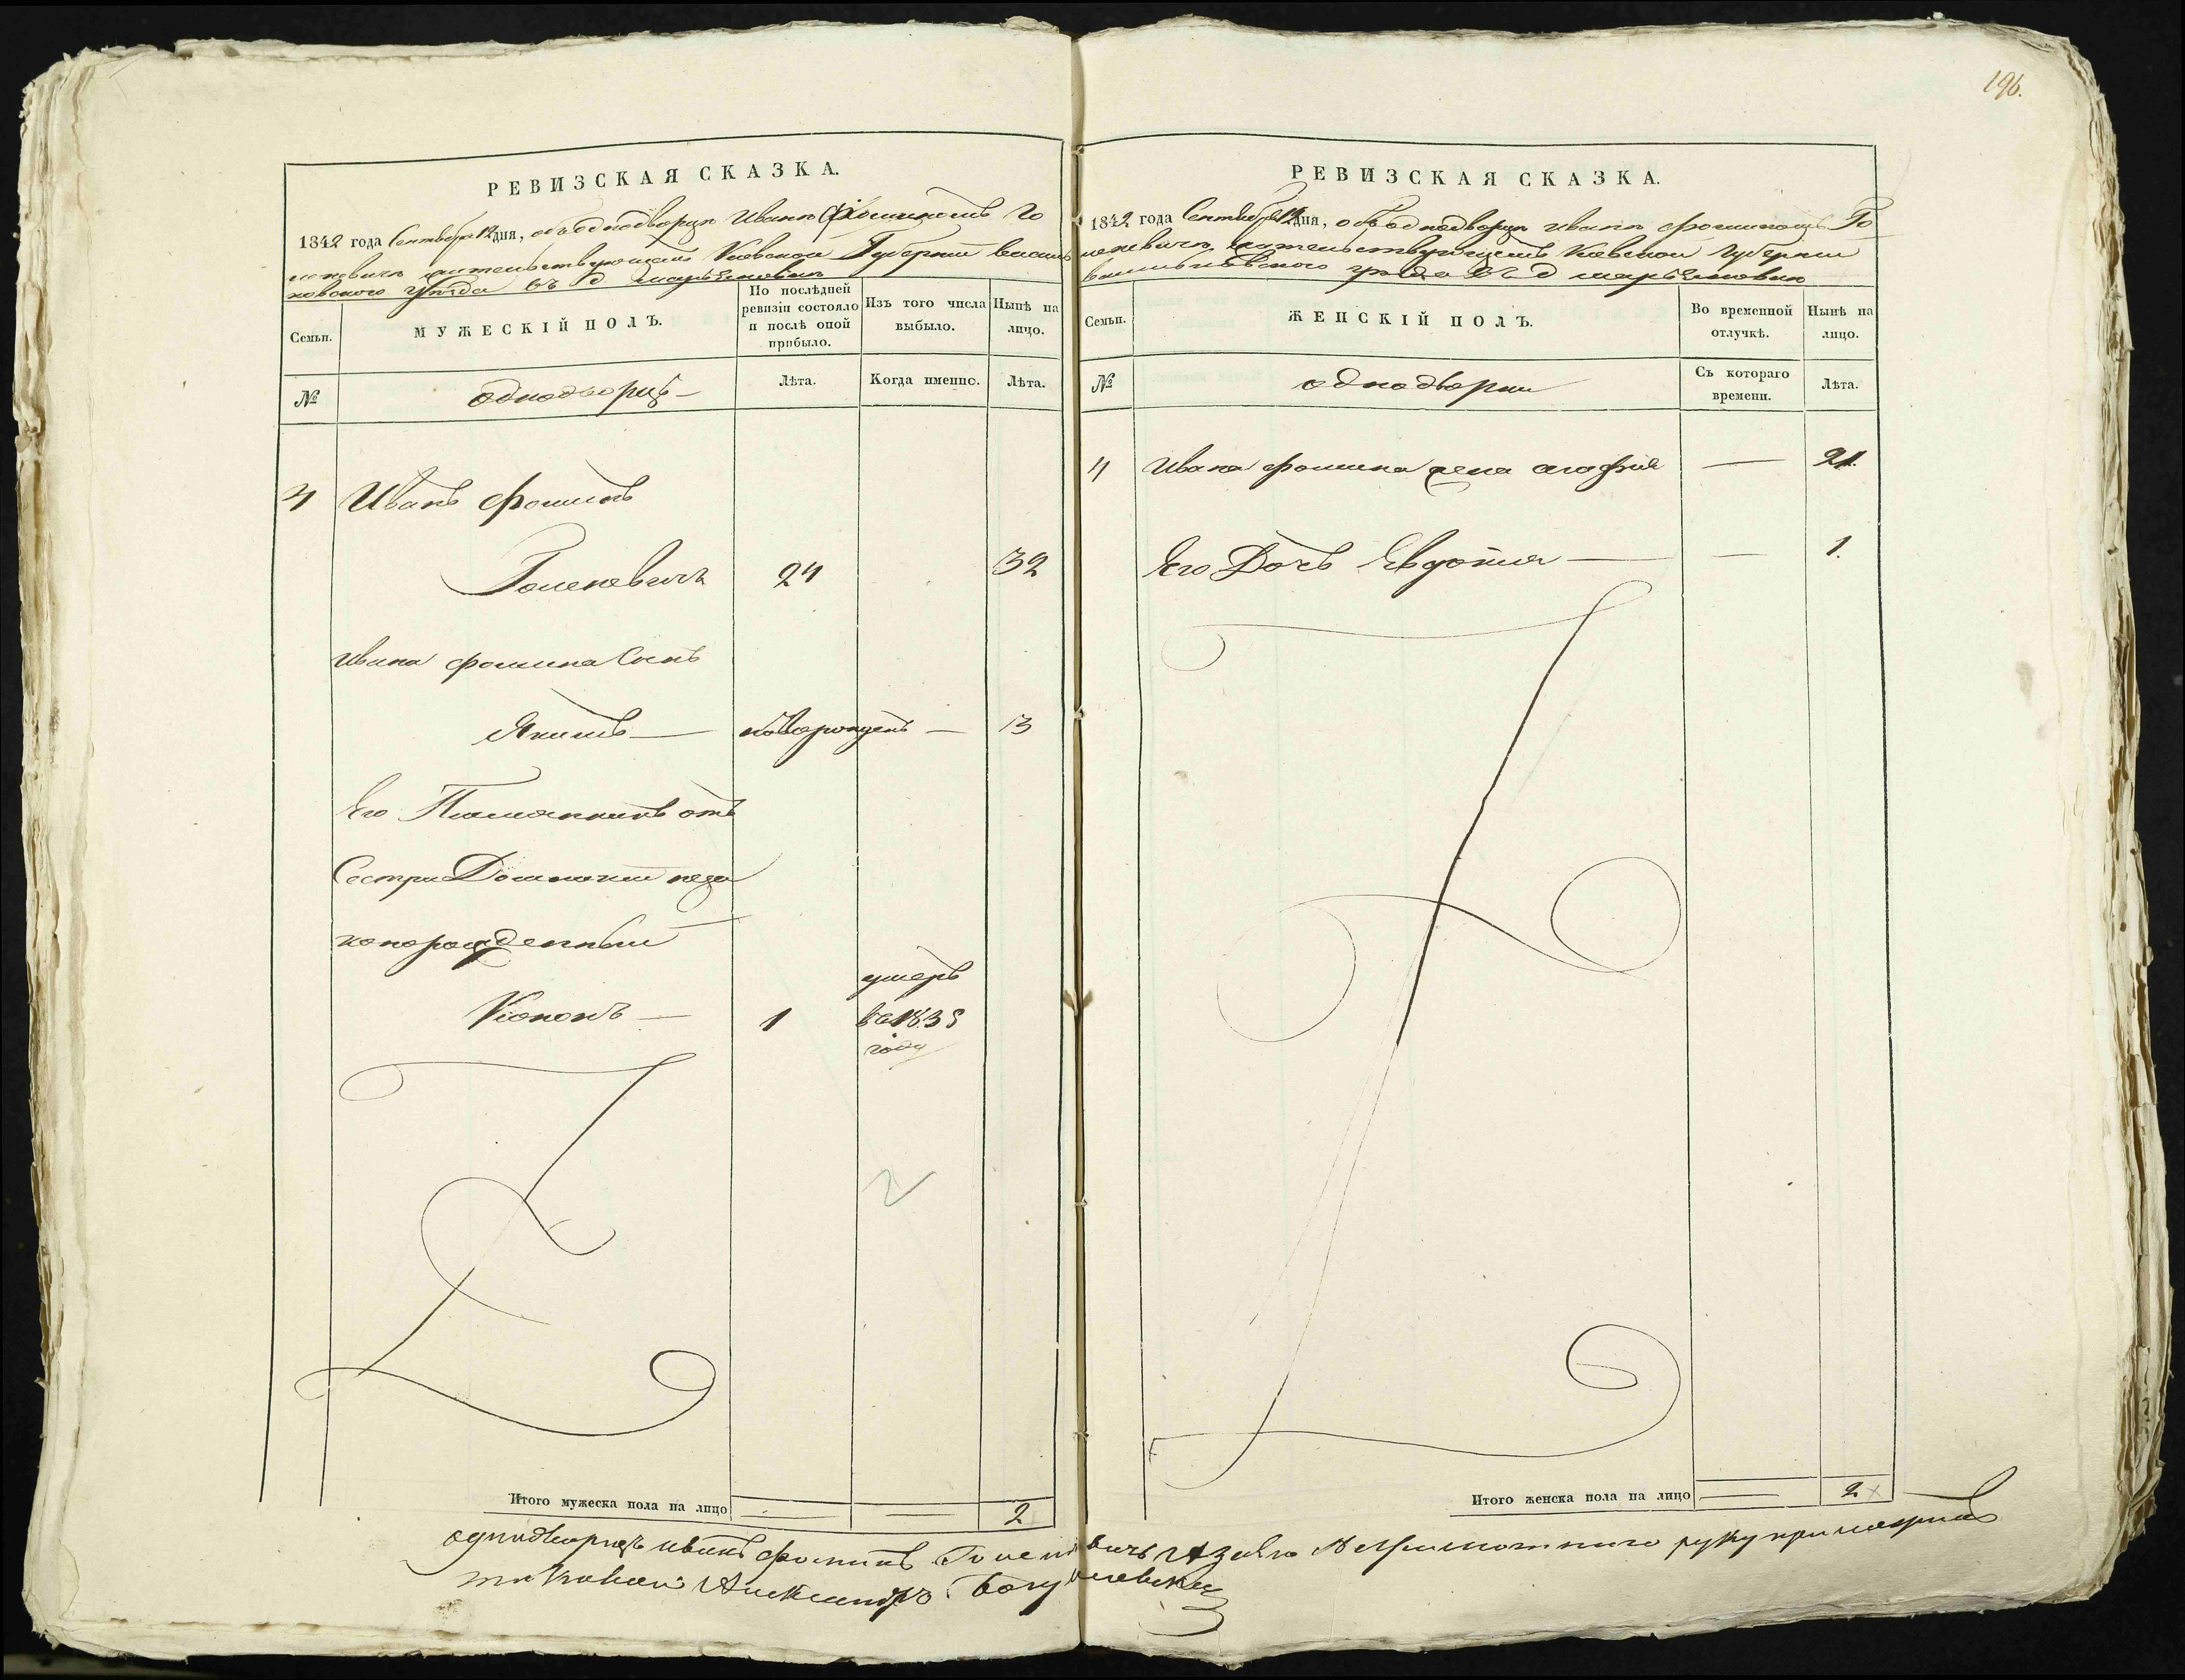 196.
РЕВИЗСКАЯ СКАЗКА.
1842 года Сентября 12 дня, объ однодворцѣ Иванѣ Фоминомъ Го
леневичѣ жительствующемъ Кіевской Губерніи василь
ковского уѣзда въ д
Семьи.
МУЖЕСКІЙ ПОЛЪ.
По послѣдней ревизіи состояло и послѣ оной прибыло.
Изъ того числа выбыло.
Нынѣ на лицо.
№
однодворцѣ
Лѣта.
Когда именно.
Лѣта.
4 Иванъ Фоминъ
Голеневичъ 24 32
Ивана Фомина Сынъ
Якимъ — новорожденъ — 3
Его Племянникъ отъ
Сестри неза
конорожденный
Кононъ — 1 умеръ
въ 1835
году
2
Итого мужеска пола на лицо 2
РЕВИЗСКАЯ СКАЗКА.
1842 года Сентября 12 дня, объ однодворцѣ Иванѣ Фоминомъ Го
леневичѣ жительствующемъ Кіевской Губерніи
васильковского уѣзда въ д
Семьи.
ЖЕНСКІЙ ПОЛЪ.
Во временной отлучкѣ.
Нынѣ на лицо.
№
однодворки
Съ котораго времени.
Лѣта.
4 Ивана Фомина жена агафія — 21.
Его Дочь Евдокия — — 1.
Итого женска пола на лицо 2
однодворецъ иванъ фоминъ Голеневичъ а за его неграмотного руку приложилъ
таковой Александръ